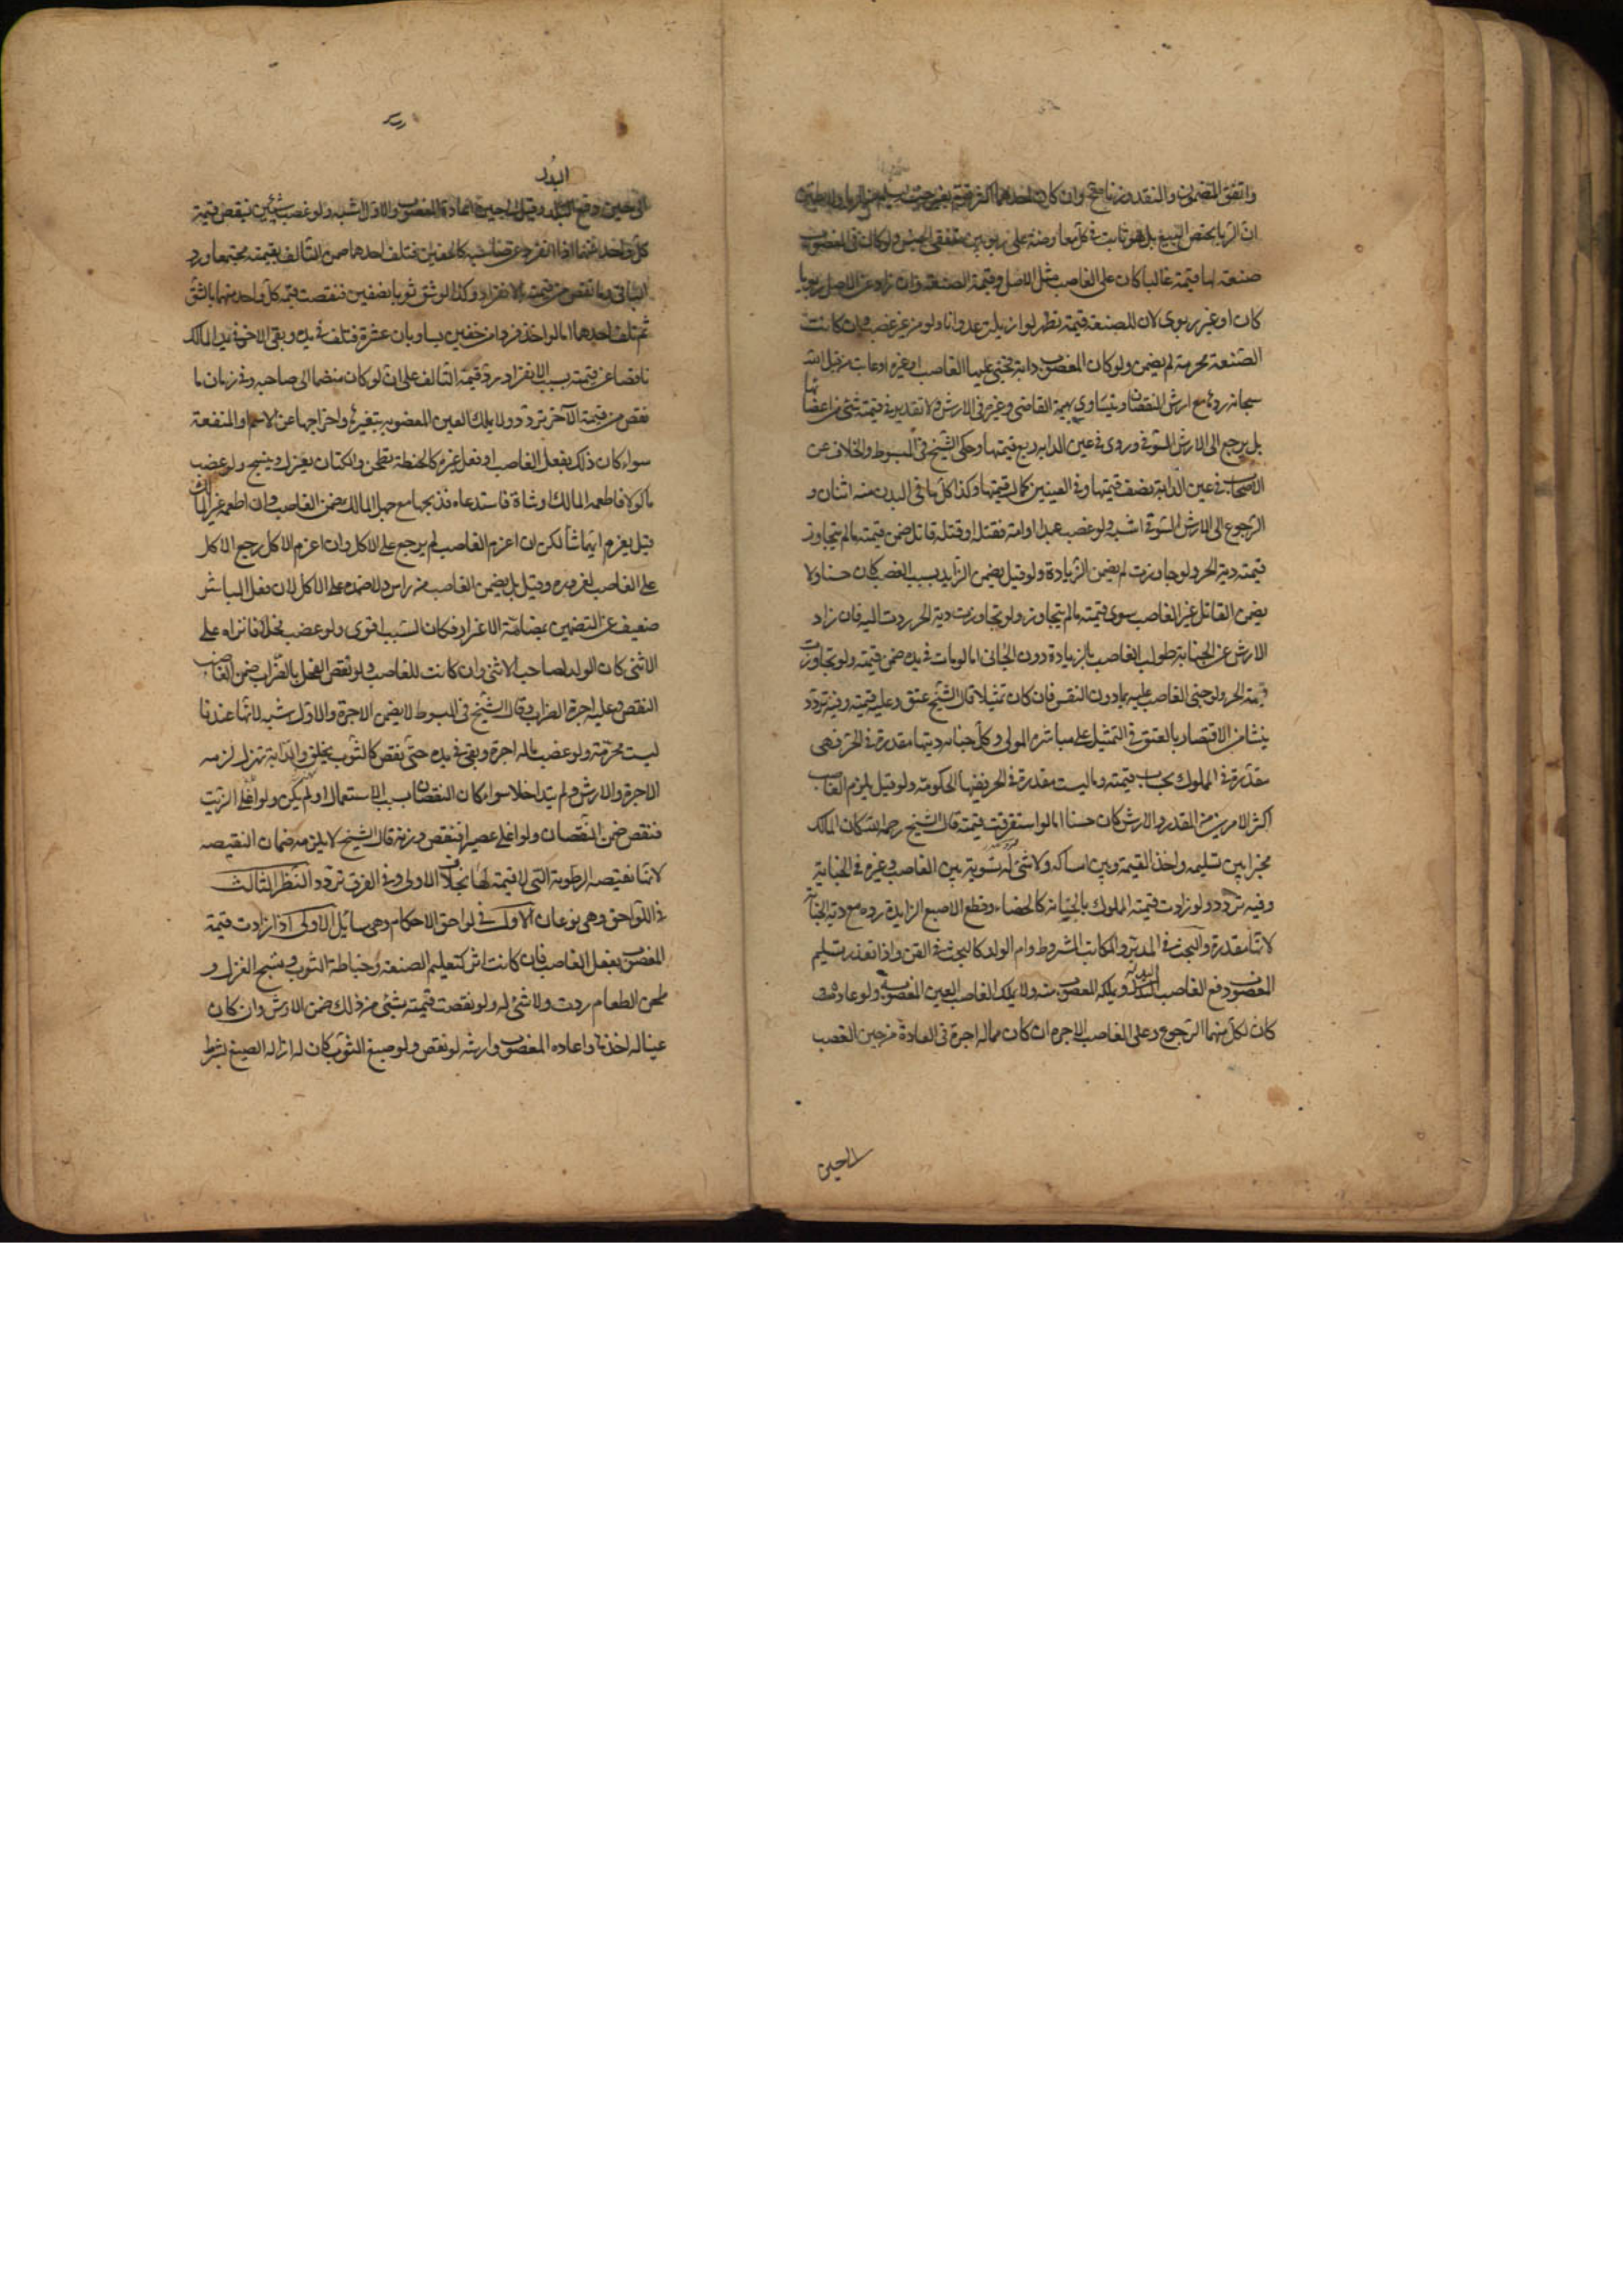 واتفق المضمون والنقد وزنا صح وان كان احدهما اكثر قوم بغير جنسه ليسلم من الربا ولا يظن
ان الربا يختص بالبيع بل هو ثابت في كل معاوضة على ربويين متفقي الجنس ولو كان في المغصوب
صنعة لها قيمة غالبا كان على الغاصب مثل الاصل وقيمة الصنعة وان زاد عن الاصل ربويا
كان او غير ربوى لان للصنعة قيمة تظهر لو ازيلت عدوانا ولو من غير غصب وان كانت
الصنعة محرمة لم يضمن ولو كان المغصوب دابة فجنى عليها الغاصب او غيره او عابت من قبل الله
سبحانه ردها مع ارش النقصان ويتساوى بهيمة القاضى وغيره فى الارش ولا تقدير فى قيمة شئ من اعضائها
بل يرجع الى الارش السوقى وروى فى عين الدابه ربع قيمتها وحكى الشيخ فى المبسوط والخلاف عن
الاصحاب فى عين الدابة نصف قيمتها وفى العينين كمال قيمتها وكذا كل ما فى البدن منه اثنان و
الرجوع الى الارش السوقى اشبه ولو غصب عبدا او امة فقتله او قتله قاتل ضمن قيمته ما لم يتجاوز
قيمته دية الحر ولو جاوزت لم يضمن الزيادة ولو قيل يضمن الزايد بسبب الغصب كان حسنا ولا
يضمن القاتل غير الغاصب سوى قيمته ما لم يتجاوز ولو تجاوزت دية الحر ردت اليه فان زاد
الارش عن الجناية طولب الغاصب بالزيادة دون الجانى اما لو مات فى يده ضمن قيمته ولو تجاوزت
دية الحر ولو جنى الغاصب عليه بما دون النفس فان كان تمثيلا قال الشيخ عتق وعليه قيمته وفيه تردد
ينشأ من الاقتصار بالعتق فى التمثيل على مباشرة المولى وكل جناية ديتها مقدرة فى الحر فهى
مقدرة فى المملوك بحساب قيمته وما ليست مقدرة فى الحر ففيها الحكومة ولو قيل يلزم الغاصب
اكثر الامرين من المقدر والارش كان حسنا اما لو استغرقت قيمته قال الشيخ رحمه الله كان المالك
مخيرا بين تسليمه واخذ القيمة وبين امساكه ولا شئ له تسوية بين الغاصب وغيره فى الجناية
وفيه تردد ولو زادت قيمة المملوك بالجناية كالخصاء وقطع الاصبع الزايدة رده مع دية الجناية
لانها مقدرة والبحث فى المدبر والمكاتب المشروط وام الولد كالبحث فى القن واذا تعذر تسليم
المغصوب دفع الغاصب البدل ويملكه المغصوب منه ولا يملك الغاصب العين المغصوبة ولو عادت
كان لكل منهما الرجوع وعلى الغاصب الاجرة ان كان مما له اجرة فى العادة من حين الغصب
الى حين
البدل
الى حين دفع البدل وقيل الى حين اعادة المغصوب والاول اشبه ولو غصب شيئين ينقص قيمة
كل واحد منهما اذا انفرد عن صاحبه كالخفين فتلف احدهما ضمن التالف بقيمته مجتمعا ورد
الباقى وما نقص من قيمته بالانفراد وكذا لو شق ثوبا نصفين فنقصت قيمة كل واحد منهما بالشق
ثم تلف احدهما اما لو اخذ فردا من خفين يساويان عشرة فتلف فى يده وبقى الاخر فى يد المالك
ناقصا عن قيمته بسبب الانفراد رد قيمة التالف على ان لو كان منضما الى صاحبه وفى ضمان ما
نقص من قيمة الآخر تردد ولا يملك العين المغصوبه بتغيرها واخراجها عن الاسم والمنفعة
سواء كان ذلك بفعل الغاصب او فعل غيره كالحنطة تطحن والكتان يغزل وينسج ولو غصب
ماكولا فاطعمه المالك او شاة فاستدعاه فذبحها مع جهل المالك ضمن الغاصب وان اطعمه غير المالك
قيل يغرم ايهما شاء لكن ان اغرم الغاصب لم يرجع على الاكل وان اغرم الاكل رجع الاكل
على الغاصب لغروره وقيل بل يضمن الغاصب من راس ولا ضمان على الاكل لان فعل المباشر
ضعيف عن التضمين بمضامة الاغترار فكان السبب اقوى ولو غصب فحلا فانزاه على
الانثى كان الولد لصاحب الانثى وان كانت للغاصب ولو نقص الفحل بالضراب ضمن الغاصب
النقص وعليه اجرة الضراب وقال الشيخ فى المبسوط لا يضمن الاجرة والاول اشبه لانها عندنا
ليست محرمة ولو غصب ما له اجرة وبقى فى يده حتى نقص كالثوب يخلق والدابة تهزل لزمه
الاجرة والارش ولم يتداخلا سواء كان النقصان بسبب الاستعمال او لم يكن ولو اغلى الزيت
فنقص ضمن النقصان ولو اغلى عصيرا فنقص وزنه قال الشيخ لا يلزمه ضمان النقيصه
لانها نقيصة الرطوبة التى لا قيمة لها بخلاف الاولى وفى الفرق تردد النظر الثالث
فى اللواحق وهى نوعان الاول فى لواحق الاحكام وهى مسايل الاولى اذا زادت قيمة
المغصوب بفعل الغاصب فان كانت اثرا كتعليم الصنعة وخياطة الثوب ونسج الغزل و
طحن الطعام ردت ولا شئ له ولو نقصت قيمته بشئ من ذلك ضمن الارش وان كان
عينا له اخذها واعاده المغصوب وارشه لو نقص ولو صبغ الثوب كان له ازالة الصبغ بشرط